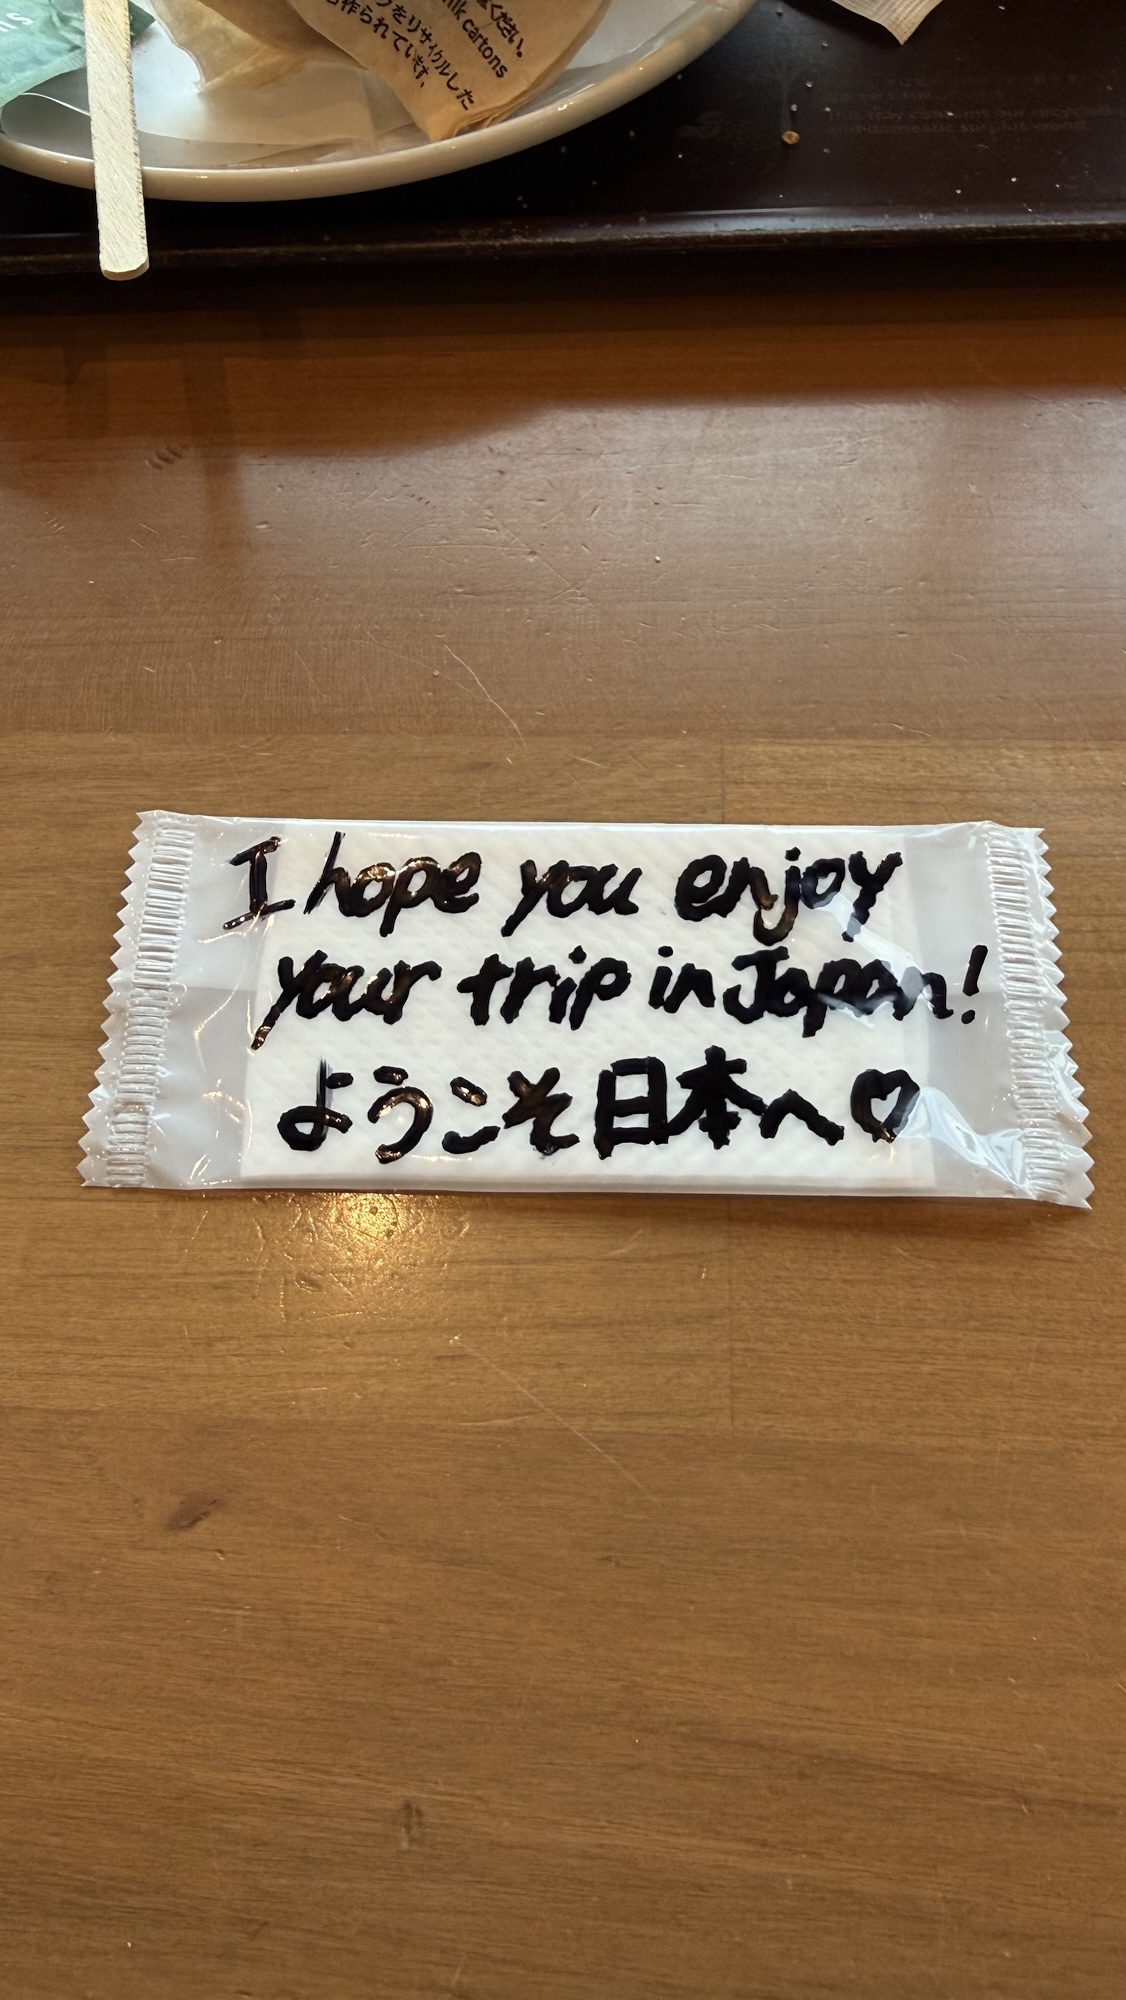 ください。
milk cartons
をリサイクルした
作られています。
This tray contains our recycled
and domestic surplus wood.
I hope you enjoy
your trip in Japan!
ようこそ日本へ♡